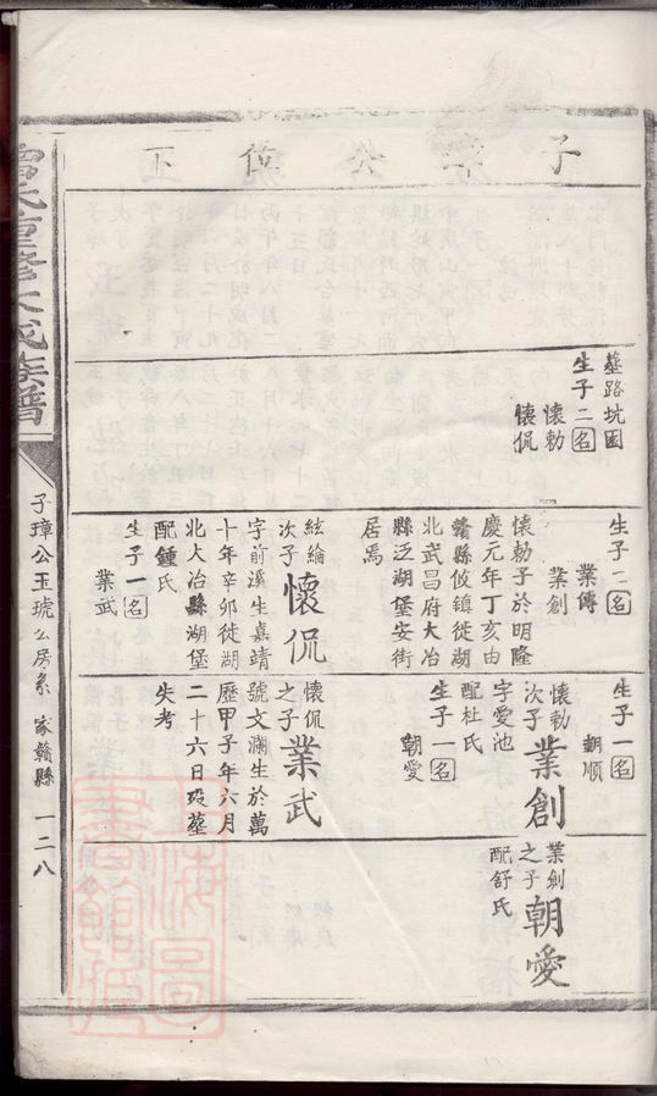 子璋公位下
墓路坑園
生子二名
懷勅
懷侃
生子二名
業傳
業創
懷勅子於明隆
慶元年丁亥由
贛縣攸鎮徙湖
北武昌府大冶
縣泛湖堡安街
居焉
絃綸
次子
懷侃
字前溪生嘉靖
十年辛卯徙湖
北大冶縣湖堡
配鍾氏
生子一名
業武
生子一名
朝順
懷勅
次子
業創
字愛池
配杜氏
生子一名
朝愛
懷侃
之子
業武
號文瀾生於萬
歷甲子年六月
二十六日歿墓
失考
業創
之子
朝愛
配舒氏
氏重修大成族譜
子璋公玉琥公房系
家贛縣
一二八
上海圖書館藏